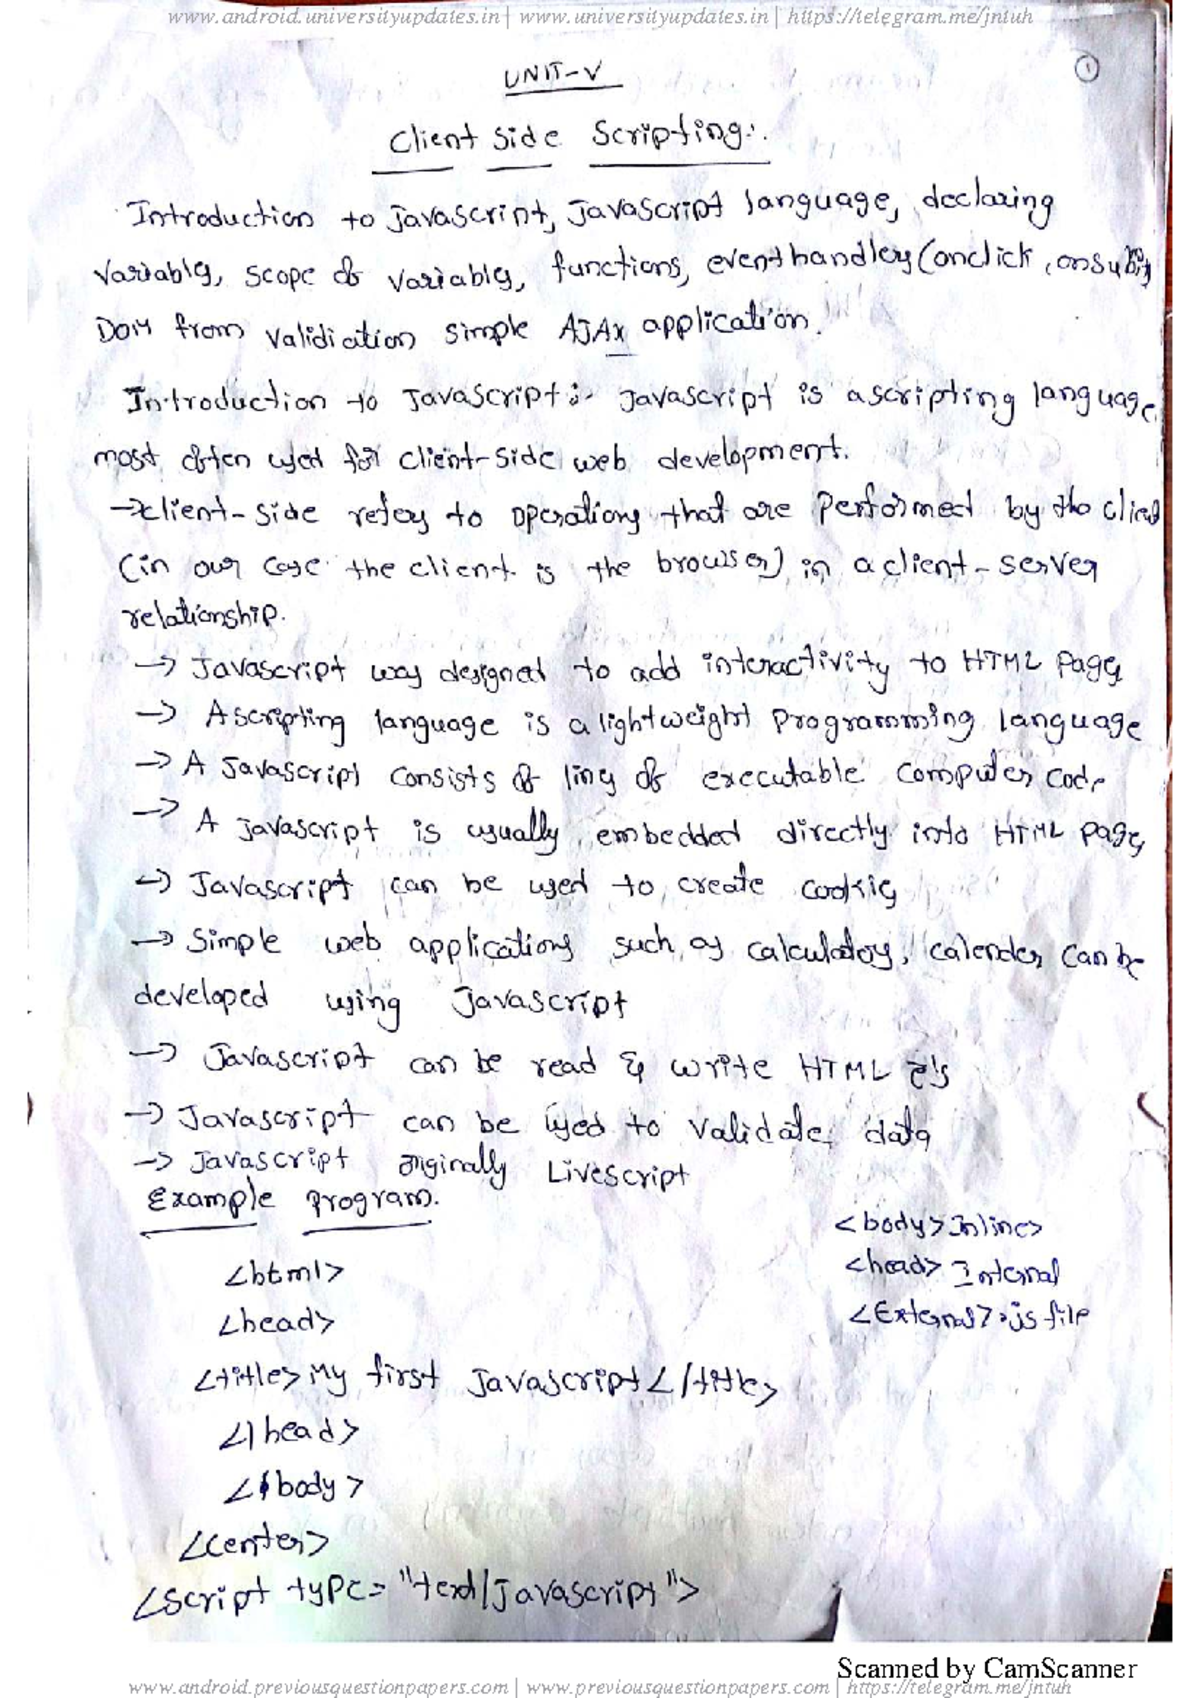 www.android.universityupdates.in | www.universityupdates.in | https://telegram.me/jntuh
UNIT-V
1
Client Side Scripting:.
Introduction to Javascript, Javascript language, declaring
Variables, scope of variables, functions, event handlers (onclick, onsubmit)
DOM from validiation simple AJAX application.
Introduction to JavaScript:- Javascript is a scripting language
most often used for client-side web development.
→client-side refers to operations that are performed by the client
(in our case the client is the browser) in a client-server
relationship.
→ Javascript was designed to add interactivity to HTML pages
→ A scripting language is a lightweight programming language
→ A Javascript consists of lines of executable computer code
→ A javascript is usually embedded directly into HTML pages
→ Javascript can be used to create cookies
→ Simple web applications such as calculators, calender can be
developed using Javascript
→ Javascript can be read & write HTML e's
→ Javascript can be used to validate data
→ Javascript originally Livescript
Example program.
<body> Inline>
<html>
<head> Internal
<head>
<External> .js file
<title> My first Javascript </title>
</head>
<body>
<center>
<script type="text/javascript">
Scanned by CamScanner
www.android.previousquestionpapers.com | www.previousquestionpapers.com | https://telegram.me/jntuh